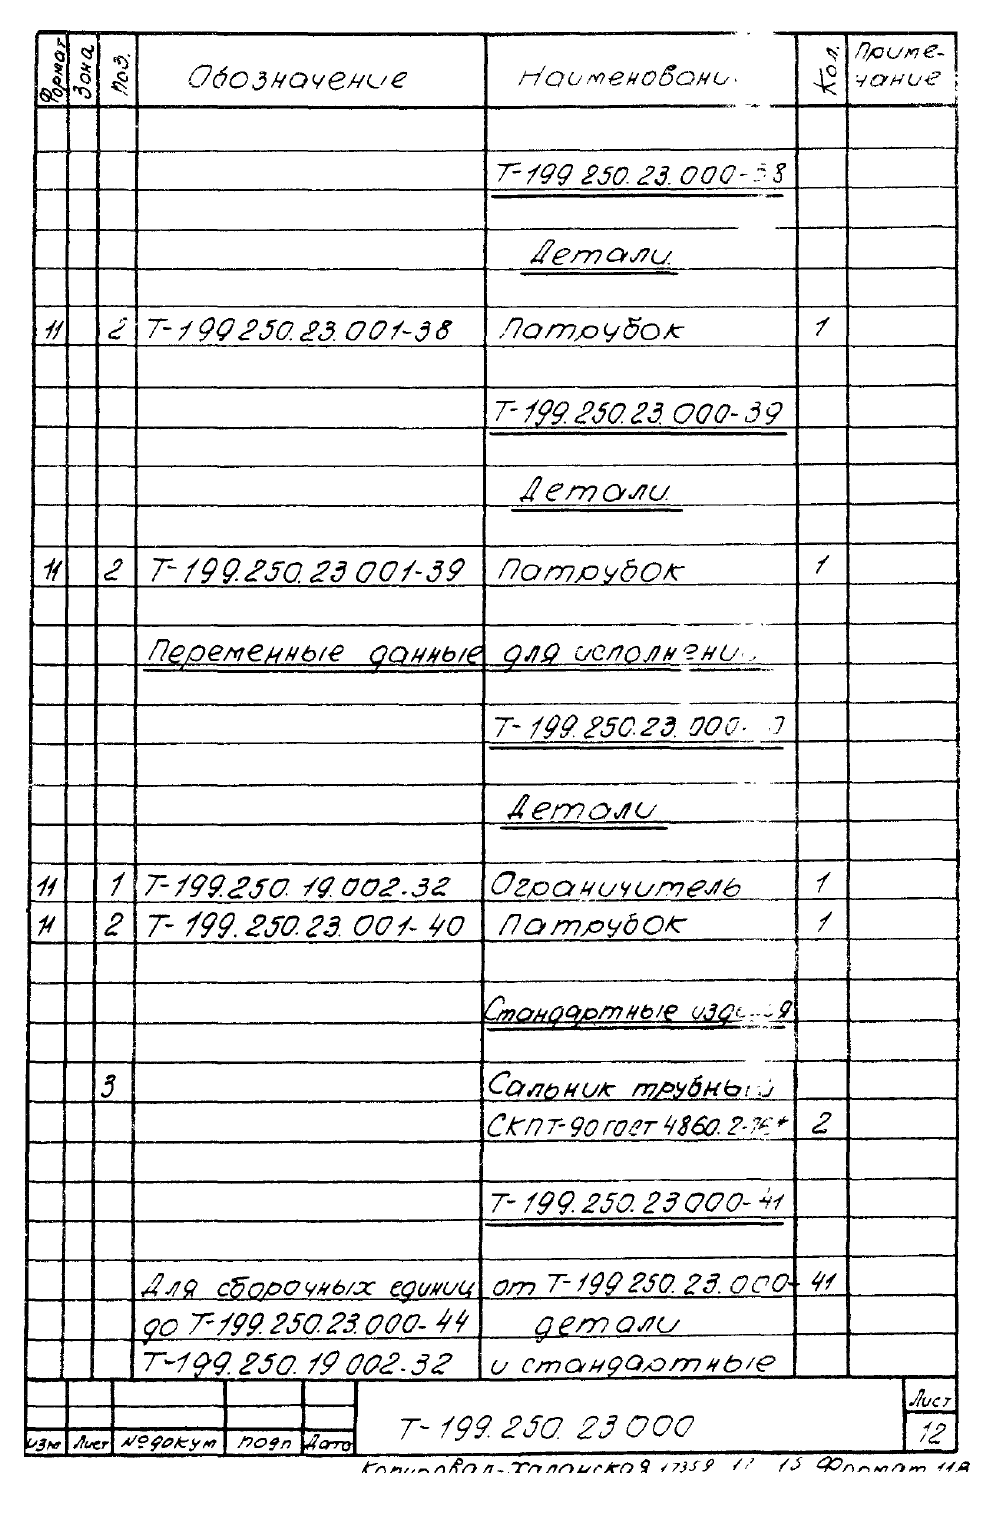 Формат Зона Поз. Обозначение Наименовани Кол. Приме-
чание
Т-199 250.23.000-38
Детали
11 2 Т-199 250.23.001-38 Патрубок 1
Т-199.250.23.000-39
Детали
11 2 Т-199.250.23 001-39 Патрубок 1
Переменные данные для исполнени
Т-199.250.23.000-
Детали
11 1 Т-199.250.19.002-32 Ограничитель 1
11 2 Т-199.250.23.001-40 Патрубок 1
Стандартные изделия
3 Сальник трубный
СКПТ-90 гост 4860.2- 2
Т-199.250.23 000-41
Для сборочных единиц от Т-199 250.23.000-41
до Т-199.250.23.000-44 детали
Т-199.250.19 002-32 и стандартные
изм Лист №докум подп Дата
Т-199.250.23 000
Лист
12
Копировал-Халанская Формат 11